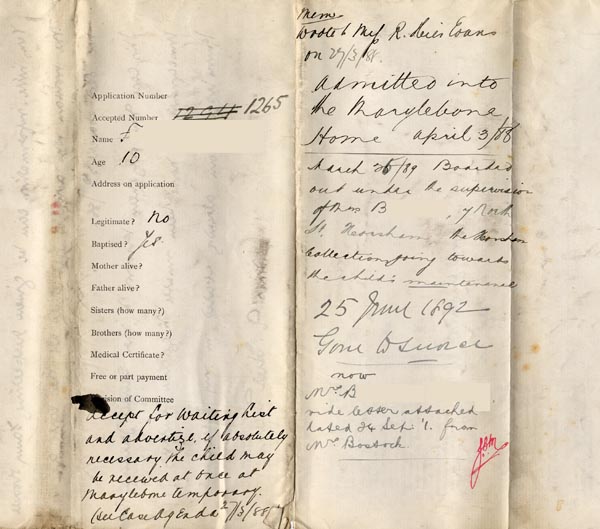 Application Number
Accepted Number 1294 1265
Name F
Age 10
Address on application
Legitimate? No
Baptised? Yes.
Mother alive?
Father alive?
Sisters (how many?)
Brothers (how many?)
Medical Certificate?
Free or part payment
ision of Committee
Accept for Waiting List
and advertize, if absolutely
necessary the child may
be received at once at
Marylebone temporary.
(See Case Agenda 27/3/88)
Mem
Wrote to R. Evans
on 27/3/88.
Admitted into
the Marylebone
Home April 3/88
March 26/89 Boarded
out under the supervision
of Mrs B , 7 North
St. Horsham, the Horsham
Collection going towards
the child's maintenance
25 June 1892
Gone to Service
now
Mrs B
vide letter attached
dated 24 Sept. '1. from
Mrs Bostock.